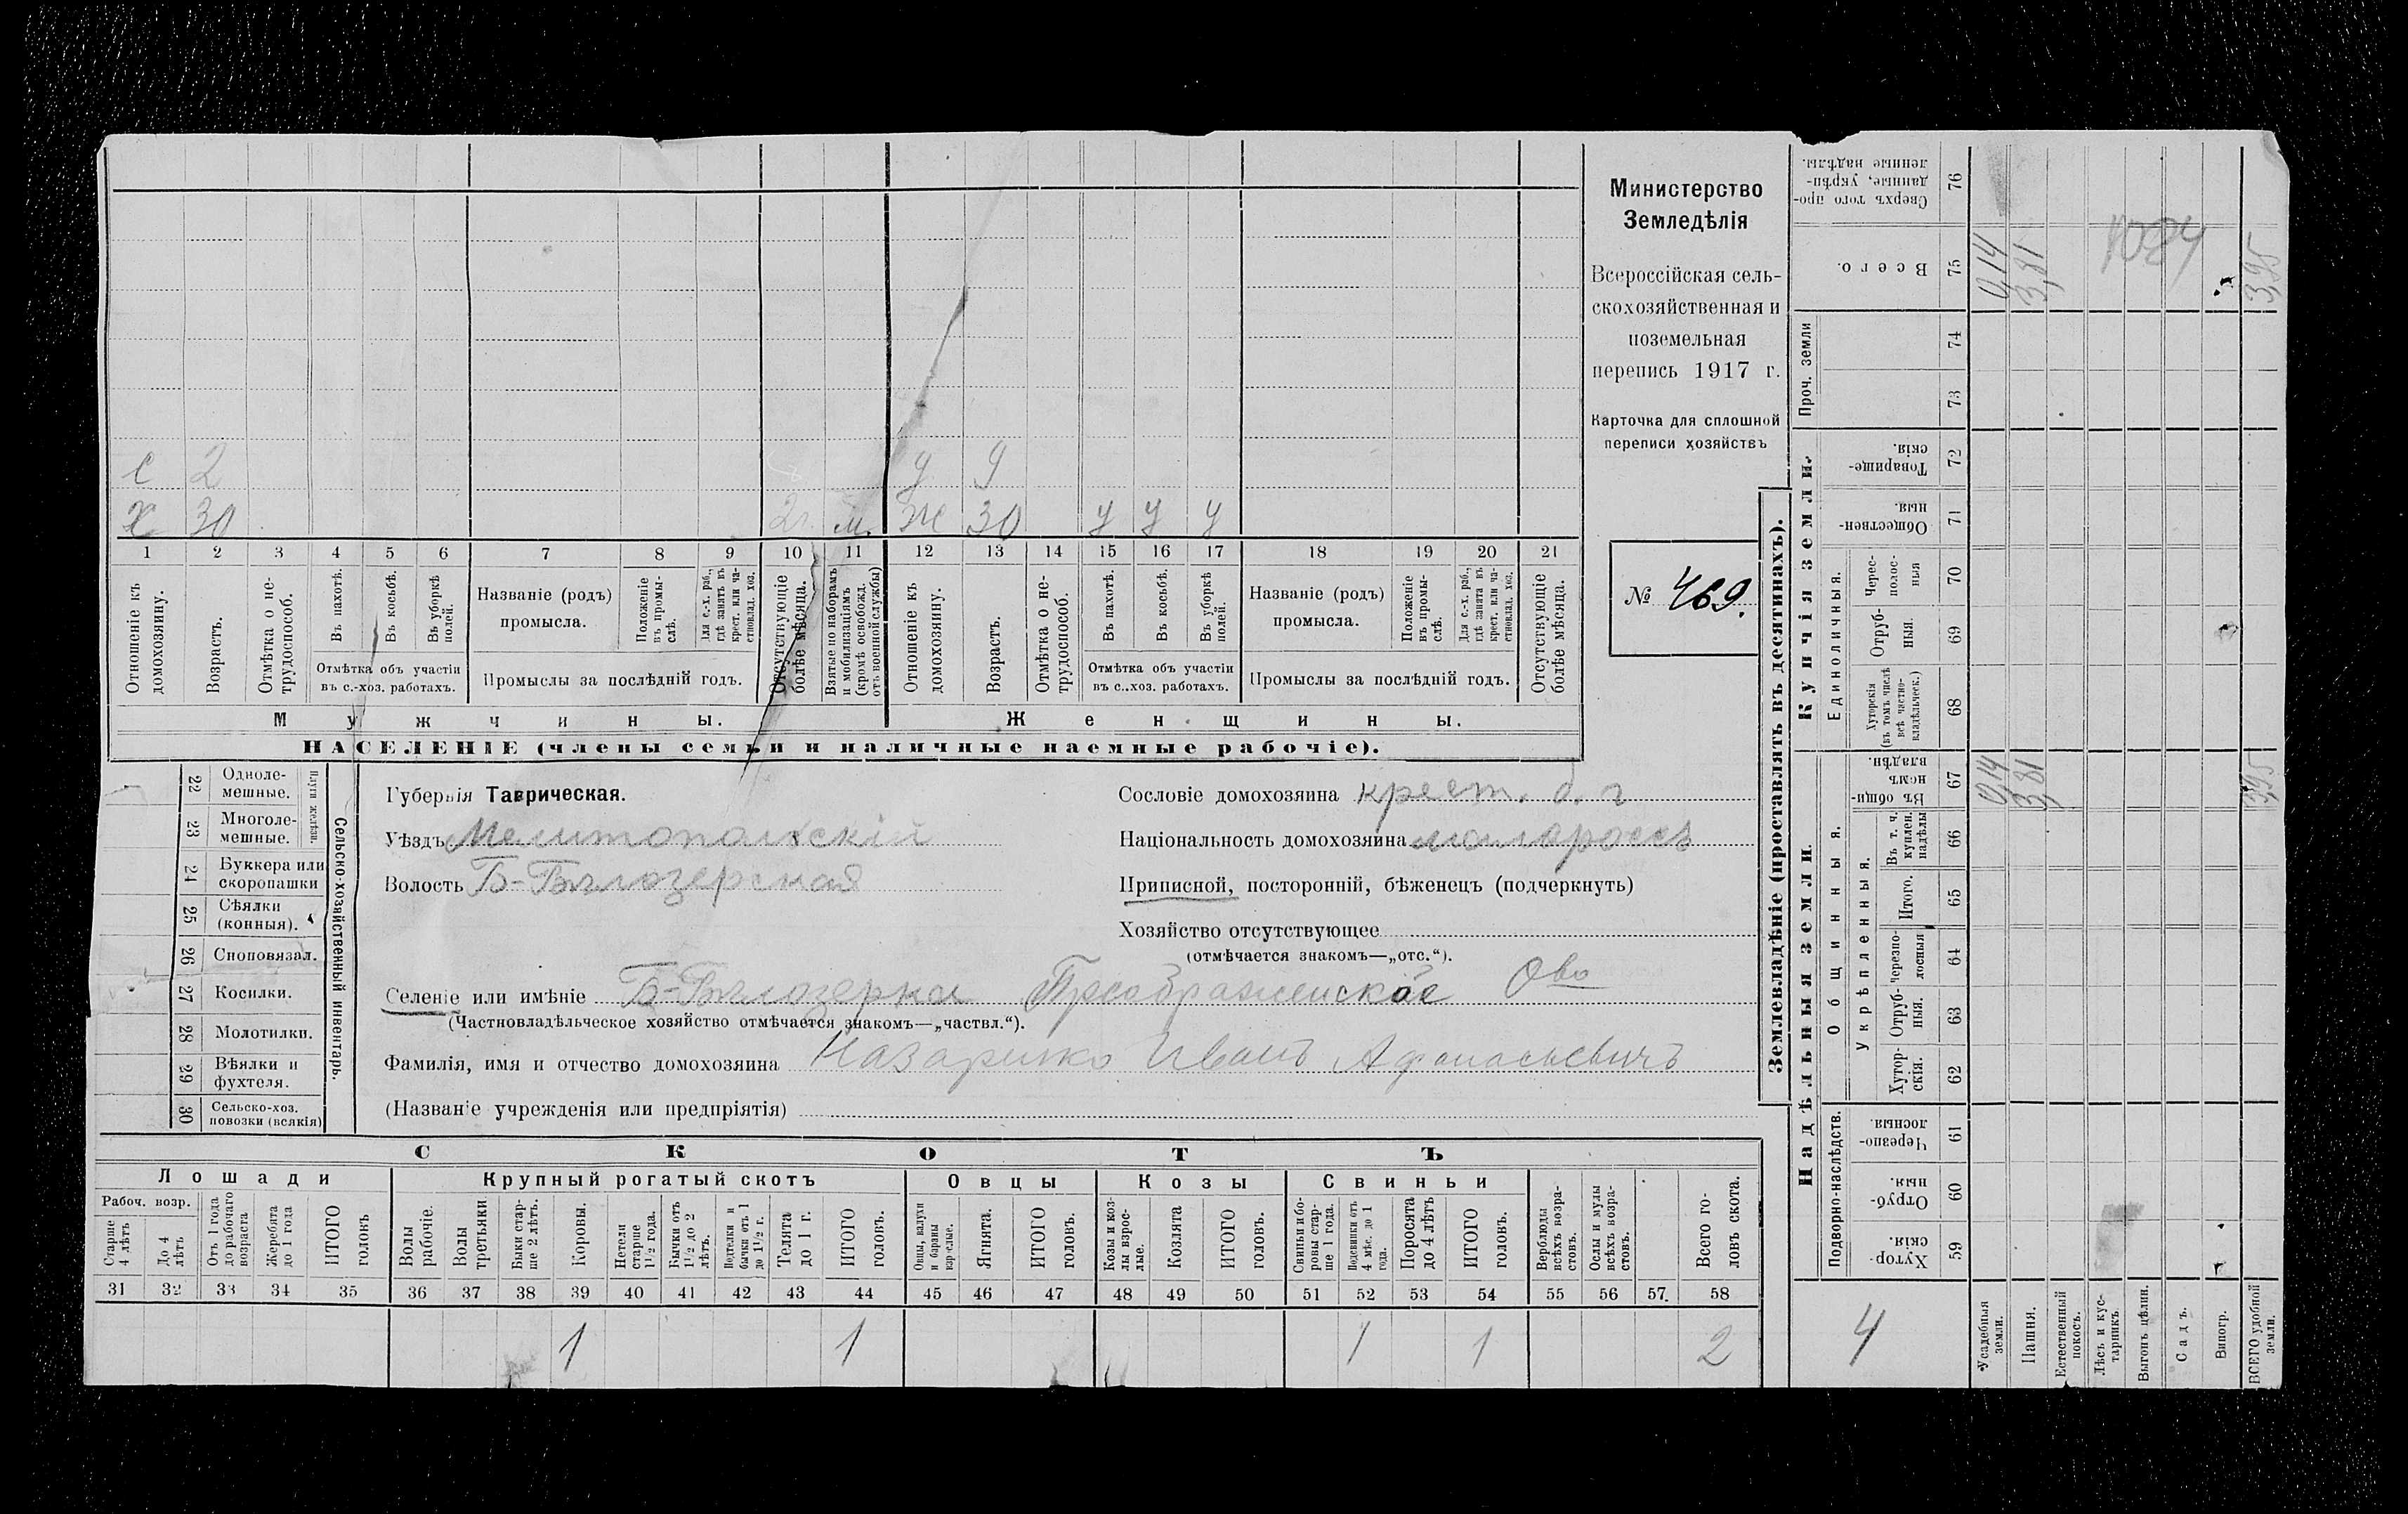 Министерство
Земледѣлія
Всероссійская сель-
скохозяйственная и
поземельная
перепись 1917 г.
Карточка для сплошной
переписи хозяйствъ
№ 469.
с 2 9
Х 30 2 г. м. Ж 30 У У У
1 2 3 4 5 6 7 8 9 10 11 12 13 14 15 16 17 18 19 20 21
Отношеніе къ домохозяину.
Возрастъ.
Отмѣтка о не-трудоспособ.
Въ пахотѣ.
Въ косьбѣ.
Въ уборкѣ полей.
Отмѣтка объ участіи
въ с.-хоз. работахъ.
Названіе (родъ)
промысла.
Положеніе въ промы-слѣ.
Для с.-х. раб., гдѣ занятъ въ крест. или ча-стновлад. хоз.
Промыслы за послѣдній годъ.
Отсутствующіе болѣе мѣсяца.
Взятые по наборамъ и мобилизаціямъ (кромѣ освобожд. отъ военной службы)
Отношеніе къ домохозяину.
Возрастъ.
Отмѣтка о не-трудоспособ.
Въ пахотѣ.
Въ косьбѣ.
Въ уборкѣ полей.
Отмѣтка объ участіи
въ с..хоз. работахъ.
Названіе (родъ)
промысла.
Положеніе въ промы-слѣ.
Для с.-х. раб., гдѣ занята въ крест. или ча-стновлад. хоз.
Промыслы за послѣдній годъ.
Отсутствующіе болѣе мѣсяца.
Мужчины. Женщины.
НАСЕЛЕНІЕ (члены семьи и наличные наемные рабочіе).
Сельско-хозяйственный инвентарь.
Плуги желѣзн.
22 Одноле-мешные.
23 Многоле-мешные.
24 Буккера или скоропашки
25 Сѣялки (конныя).
26 Сноповязал.
27 Косилки.
28 Молотилки.
29 Вѣялки и фухтеля.
30 Сельско-хоз. повозки (всякія)
Губернія Таврическая.
Уѣздъ Мелитопольскій
Волость Б-Бѣлозерская
Сословіе домохозяина крест. б. г
Національность домохозяина малороссъ
Приписной, посторонній, бѣженецъ (подчеркнуть)
Хозяйство отсутствующее
(отмѣчается знакомъ—„отс.“).
Селеніе или имѣніе Б-Бѣлозерка Преображенское Ово
(Частновладѣльческое хозяйство отмѣчается знакомъ—„частвл.“).
Фамилія, имя и отчество домохозяина Назаренко Иванъ Афанасьевичъ
(Названіе учрежденія или предпріятія)
СКОТЪ
Лошади Крупный рогатый скотъ Овцы Козы Свиньи
Рабоч. возр.
Старше 4 лѣтъ
До 4 лѣтъ
Отъ 1 года до рабочаго возраста
Жеребята до 1 года
ИТОГО головъ
Волы рабочіе.
Волы третьяки
Быки стар-ше 2 лѣтъ.
Коровы.
Нетели старше 1½ года.
Бычки отъ 1½ до 2 лѣтъ.
Подтелки и бычки отъ 1 до 1½ г.
Телята до 1 г.
ИТОГО головъ.
Овцы, валухи и бараны взрослые.
Ягнята.
ИТОГО головъ.
Козы и коз-лы взрос-лые.
Козлята
ИТОГО головъ.
Свиньи и бо-ровы стар-ше 1 года.
Подсвинки отъ 4 мѣс. до 1 года.
Поросята до 4 лѣтъ
ИТОГО головъ.
Верблюды всѣхъ возра-стовъ.
Ослы и мулы всѣхъ возра-стовъ.
Всего го-ловъ скота.
31 32 33 34 35 36 37 38 39 40 41 42 43 44 45 46 47 48 49 50 51 52 53 54 55 56 57. 58
1 1 1 1 2
Землевладѣніе (проставлять въ десятинахъ).
Купчія земли.
Надѣльныя земли.
Сверхъ того про-данные, укрѣп-ленные надѣлы. 76
Всего. 75 0,14 3,81 1084 3,95
Проч. земли 74 73
Товарище-скія. 72
Обществен-ныя. 71
Единоличныя.
Черес-полос-ныя 70
Отруб-ныя. 69
Хуторскія (въ томъ числѣ всѣ частно-владѣльческ.) 68
Общинныя.
Въ общин-номъ владѣн. 67 0,14 3,81 3,95
Укрѣпленныя.
Въ т. ч. куплен. надѣлы 66
Итого. 65
Черезпо-лосныя 64
Отруб-ныя. 63
Хутор-скія. 62
Подворно-наслѣдств.
Черезпо-лосныя. 61
Отруб-ныя. 60
Хутор-скія. 59
4
Усадебныя земли.
Пашня.
Естественный покосъ.
Лѣсъ и кус-тарникъ.
Выгонъ цѣлин.
Садъ.
Виногр.
ВСЕГО удобной земли.